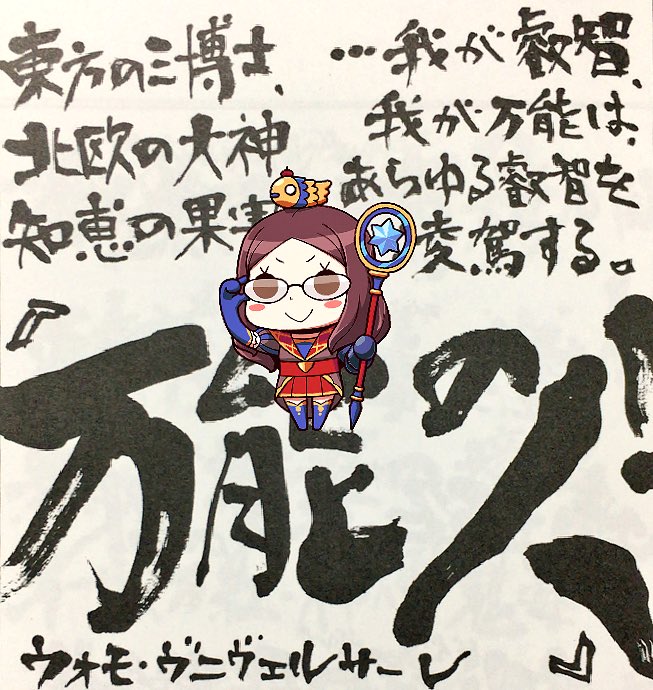 東方の三博士、
北欧の大神
知恵の果実
…我が叡智、
我が万能は、
あらゆる叡智を
凌駕する。
『万能の人!
ウォモ・ヴニヴェルサーレ』